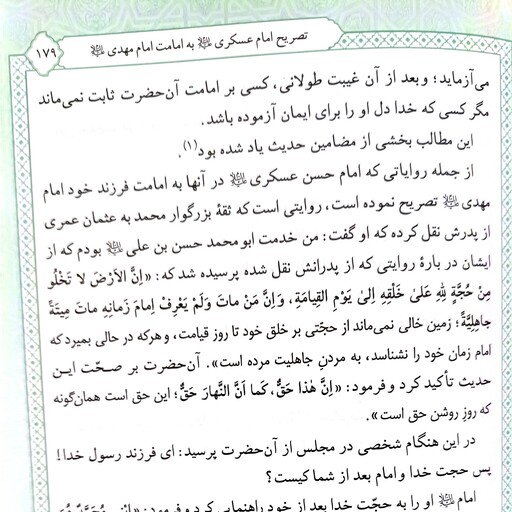 تصریح امام عسکری ﷺ به امامت امام مهدی ﷺ
۱۷۹
می‌آزماید؛ و بعد از آن غیبت طولانی، کسی بر امامت آن‌حضرت ثابت نمی‌ماند
مگر کسی که خدا دل او را برای ایمان آزموده باشد.
این مطالب بخشی از مضامین حدیث یاد شده بود(۱).
از جمله روایاتی که امام حسن عسکری در آنها به امامت فرزند خود امام
مهدی تصریح نموده است، روایتی است که ثقهٔ بزرگوار محمد به عثمان عمری
از پدرش نقل کرده که او گفت: من خدمت ابو محمد حسن بن علی بودم که از
ایشان در بارهٔ روایتی که از پدرانش نقل شده پرسیده شد که: «اِنَّ الاَرْضَ لا تَخْلُو
مِنْ حُجَّةٍ لِلّهِ عَلیٰ خَلْقِهِ اِلیٰ یَوْمِ القِیامَةِ، وَاِنَّ مَنْ ماتَ وَلَمْ یَعْرِفْ اِمامَ زَمانِهِ ماتَ مِیتَةً
جاهِلِیَّةً؛ زمین خالی نمی‌ماند از حجّتی بر خلق خود تا روز قیامت، و هرکه در حالی بمیرد که
امام زمان خود را نشناسد، به مردنِ جاهلیت مرده است». آن‌حضرت بر صـحّت ایـن
حدیث تأکید کرد و فرمود: «اِنَّ هٰذا حَقٌّ، کَما اَنَّ النَّهارَ حَقٌّ؛ این حق است همان‌گونه
که روزِ روشن حق است».
در این هنگام شخصی در مجلس از آن‌حضرت پرسید: ای فرزند رسول خدا!
پس حجت خدا و امام بعد از شما کیست؟
امام او را به حجّت خدا بعد از خود راهنمایی کرد و فرمود: